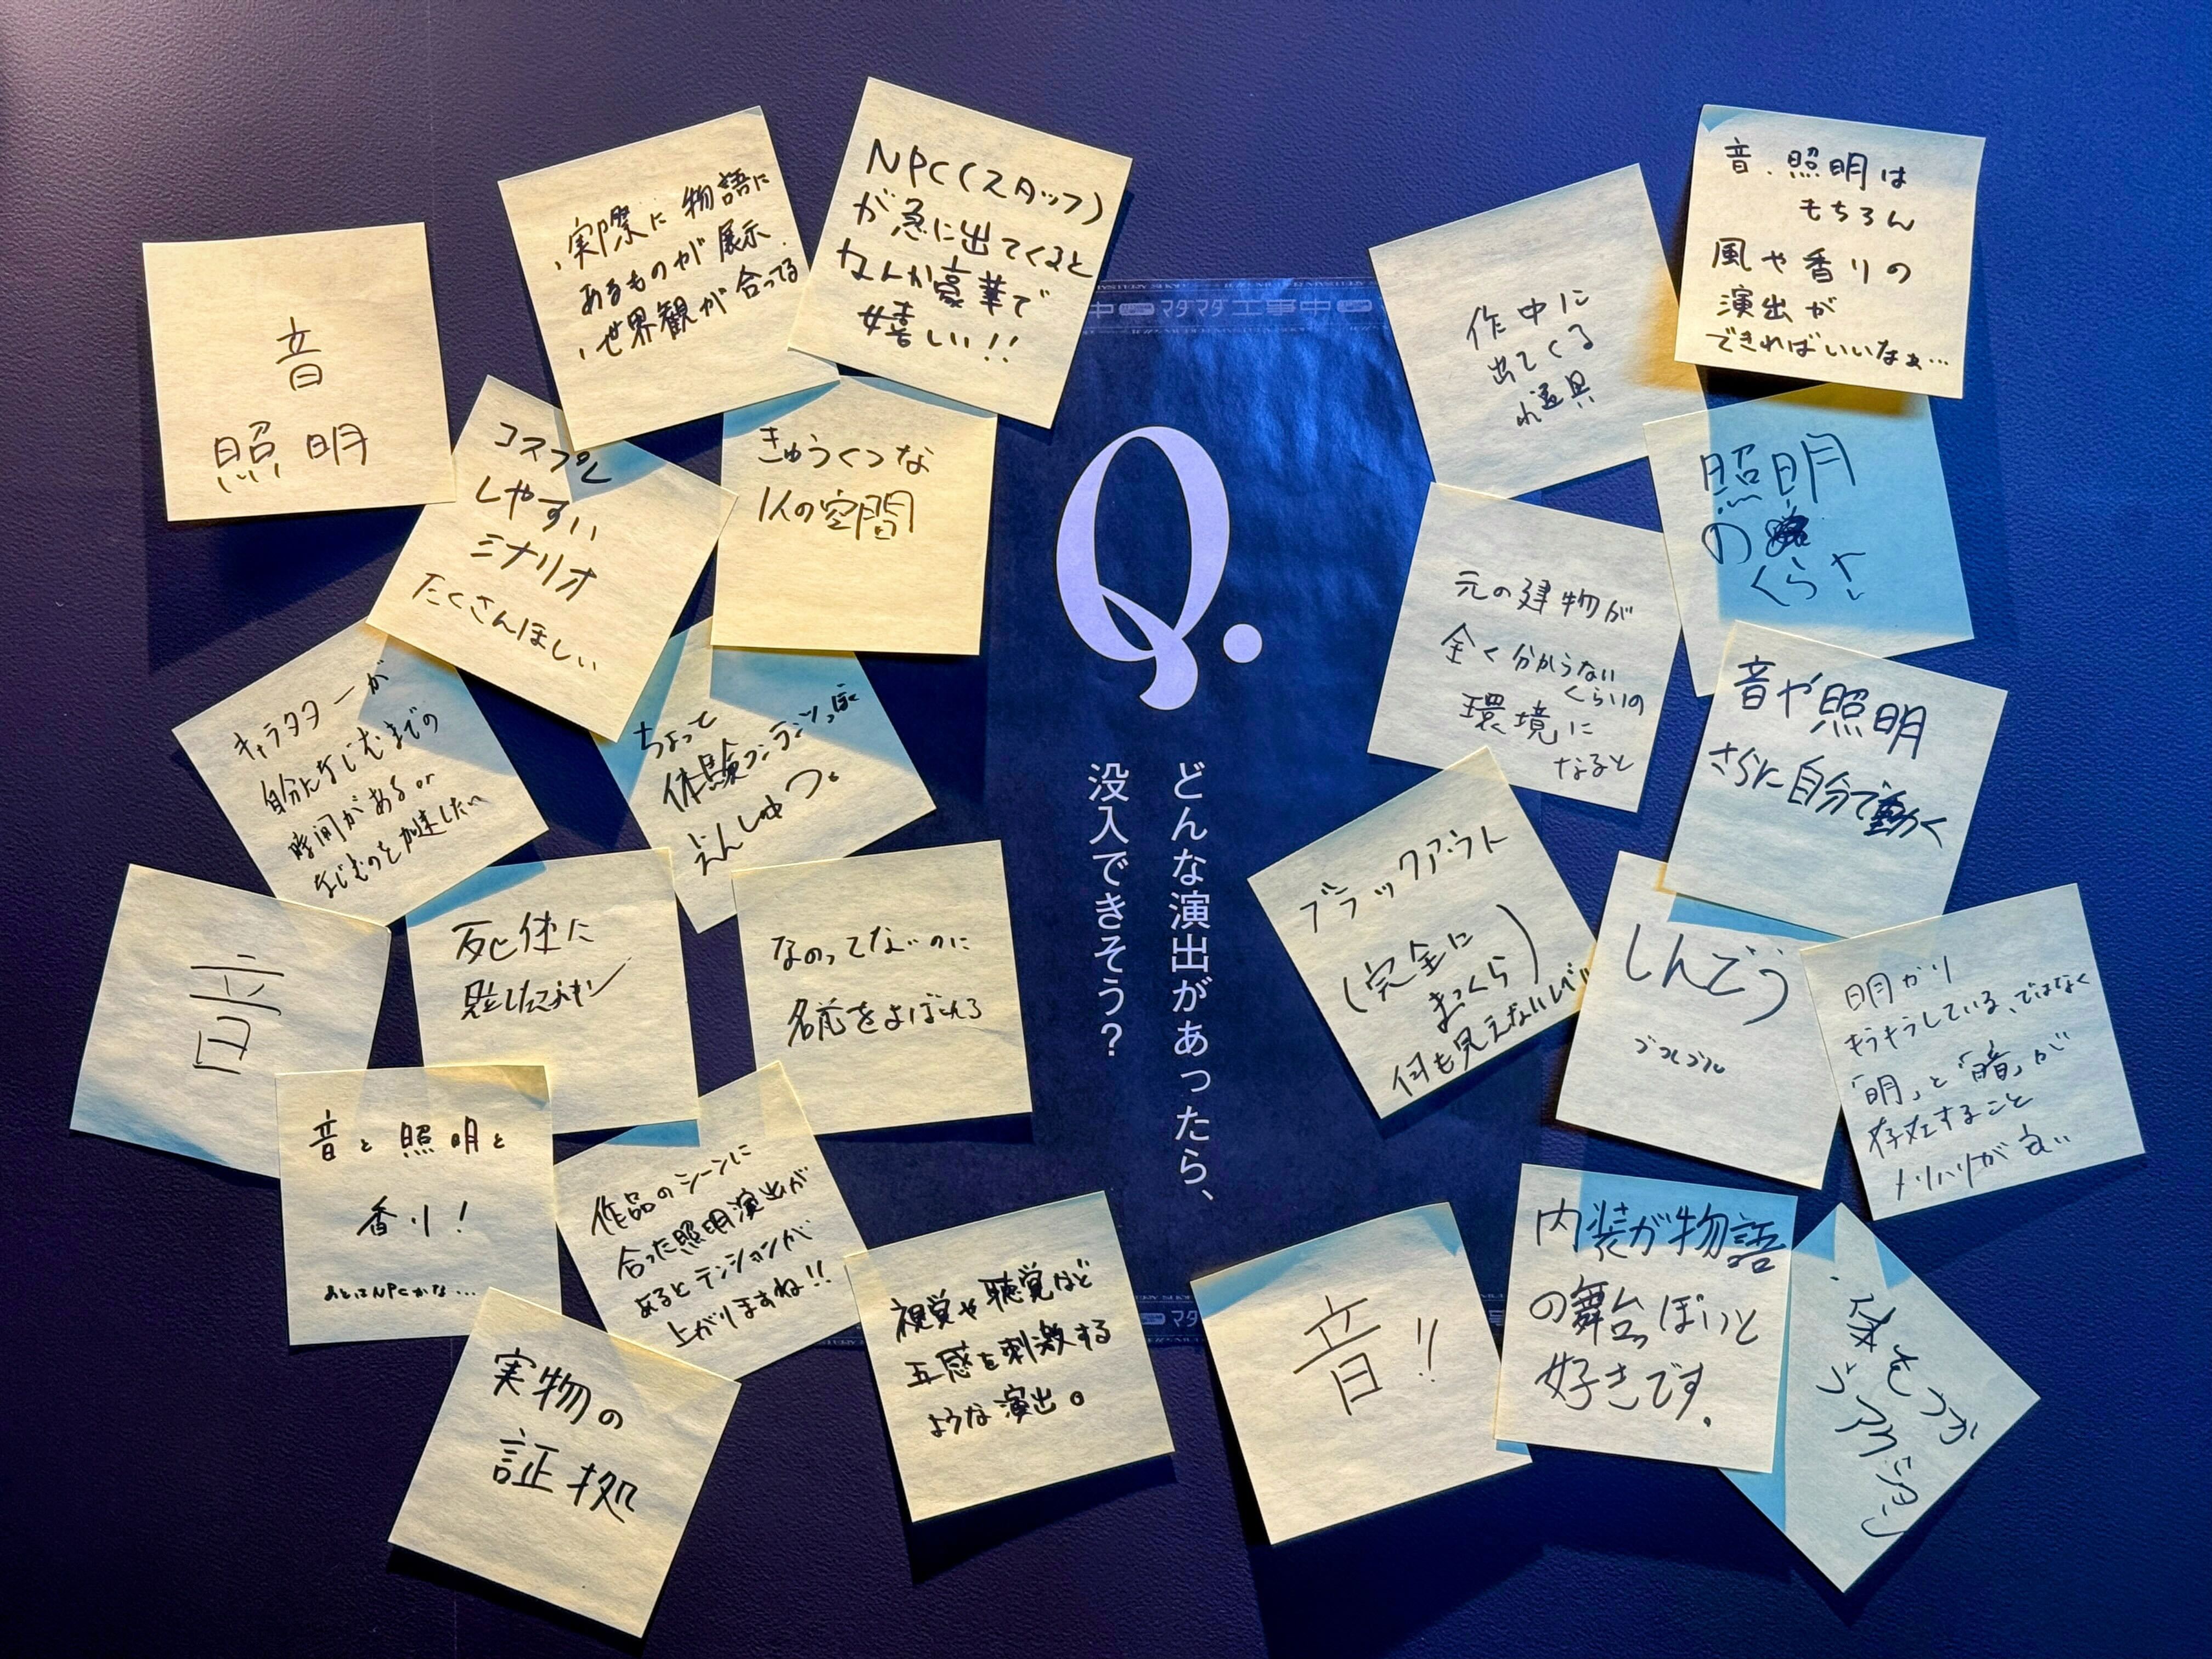 音
照明
、実際に物語に
あるものが展示
、世界観が合ってる
NPC(スタッフ)
が急に出てくると
なんか豪華で
嬉しい!!
コスプレ
しやすい
シナリオ
たくさんほしい
きゅうくつな
1人の空間
キャラクターが
自分になじむまでの
時間がある or
なじむのを加速したい
ちょっと
体験コンテンツっぽく
えんしゅつ。
音
死体に
なのってないのに
名前をよばれる
音と照明と
香り!
あとはNPCかな…
作品のシーンに
合った照明演出が
あるとテンションが
上がりますね!!
実物の
証拠
視覚や聴覚など
五感を刺激する
ような演出。
マダマダ工事中
Q.
どんな演出があったら、
没入できそう?
作中に
出てくる
小道具
音.照明は
もちろん
風や香りの
演出が
できればいいなぁ…
照明
の
くらさ
元の建物が
全く分からない
くらいの
環境に
なると
音や照明
さらに自分で動く
ブラックアウト
(完全に
まっくら)
何も見えないレベル
しんどう
ブルブル
明かり
もうもうしている、ではなく
「明」と「暗」が
存在すること
メリハリが良い
音!!
内装が物語
の舞台っぽいと
好きです.
・体をつか
うアクション